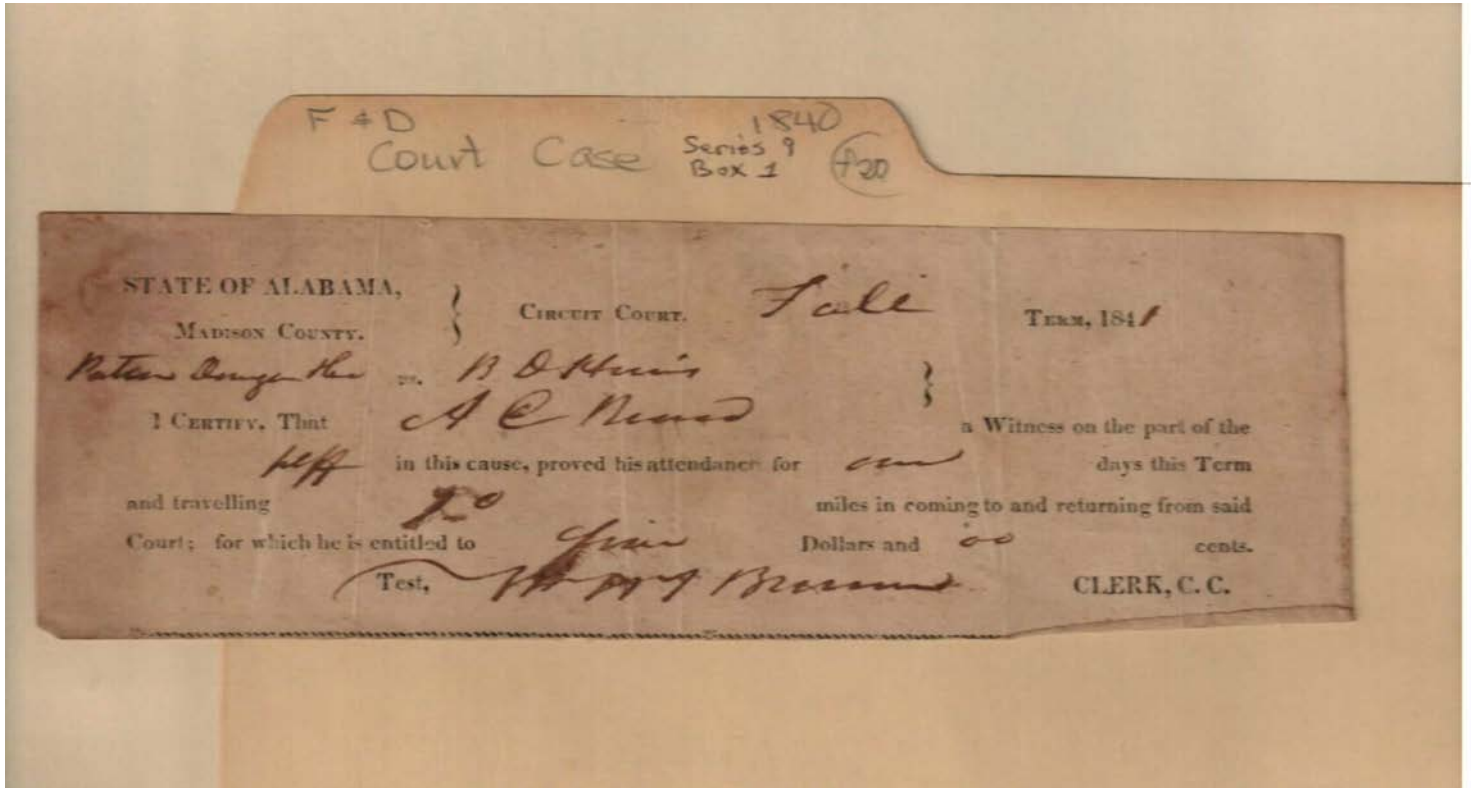 F & D 1840
Court Case Series 9
Box 1 f20
STATE OF ALABAMA,
MADISON COUNTY.
CIRCUIT COURT. Fall TERM, 1841
vs. B D
I CERTIFY, That A C a Witness on the part of the
plff in this cause, proved his attendance for one days this Term
and travelling miles in coming to and returning from said
Court; for which he is entitled to Dollars and 00 cents.
Test, CLERK, C. C.